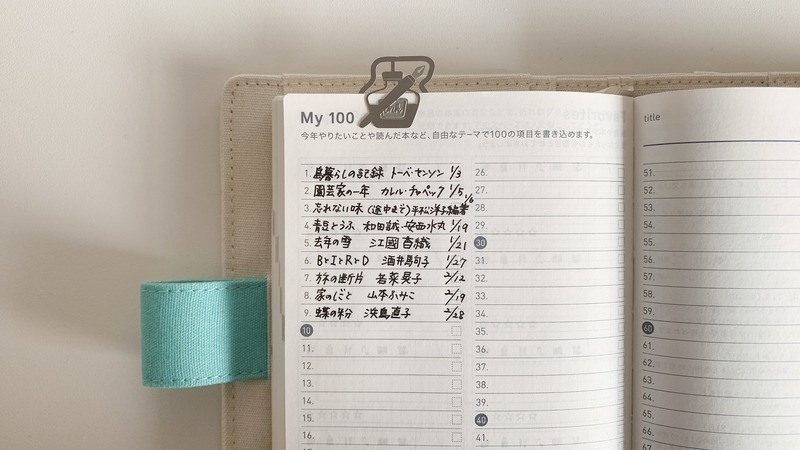 My 100
今年やりたいことや読んだ本など、自由なテーマで100の項目を書き込めます。
1. 島暮らしの記録 トーベ・ヤンソン 1/3
2. 園芸家の一年 カレル・チャペック 1/5
3. 忘れない味 (途中まで) 平松洋子編著 1/6
4. 青豆とうふ 和田誠・安西水丸 1/19
5. 去年の雪 江國香織 1/21
6. BとIとRとD 酒井駒子 1/27
7. 旅の断片 若菜晃子 2/12
8. 家のしごと 山本ふみこ 2/19
9. 蝶の粉 浜島直子 2/28
10
11.
12.
13.
14.
15.
16.
26.
27.
28.
29.
30
31.
32.
33.
34.
35.
36.
37.
38.
39.
40
41.
title
51.
52.
53.
54.
55.
56.
57.
58.
59.
60
61.
62.
63.
64.
65.
66.
67.